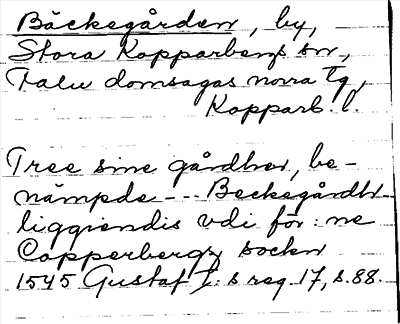 Bäckegården, by,
Stora Kopparbergs sn,
Falu domsagas norra tg,
Kopparb. l.
Tree sine gårdher, be-
nämpde --- Beckegårdh
liggiendis vdi för: ne
Copperbergz sockn
1545 Gustaf I: s reg. 17, s. 88.